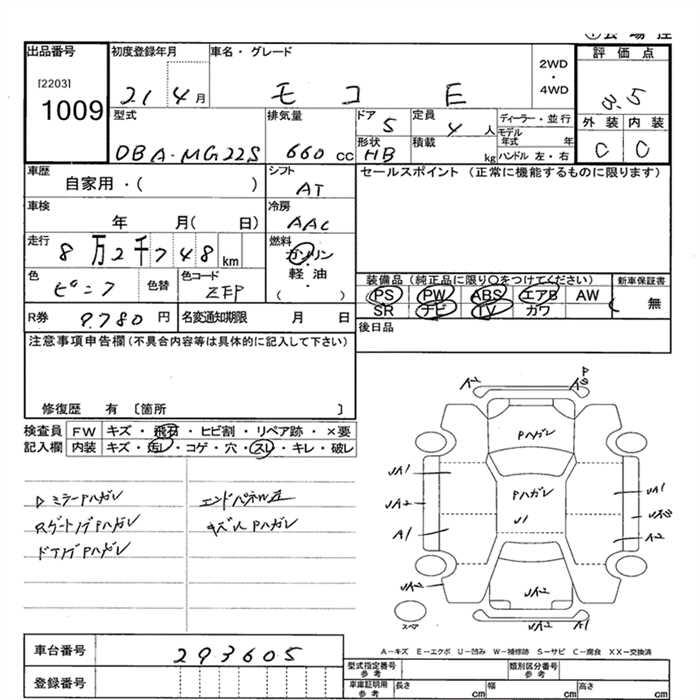 出品番号
[2203]
1009
初度登録年月
21 4月
車名・グレード
モコ E
2WD
・
4WD
評価点
3.5
外装 内装
C C
型式
DBA-MG22S
排気量
660 CC
ドア
5
定員
4 人
形状
HB
積載
kg
ディーラー・並行
モデル年式 年
ハンドル 左・右
車歴
自家用・( )
シフト
AT
セールスポイント (正常に機能するものに限ります)
車検
年 月( 日)
冷房
AAC
走行
8万2千748km
燃料
ガソリン
・
軽油
・
( )
色
ピンク
色替
色コード
ZFP
装備品 (純正品に限り○をつけてください)
PS PW ABS エアB AW
SR ナビ TV カワ
新車保証書
無
R券
9.780 円
名変通知期限
月 日
後日品
注意事項申告欄 (不具合内容等は具体的に記入して下さい)
修復歴 有 〔箇所 〕
検査員 FW キズ・飛石・ヒビ割・リペア跡・×要
記入欄 内装 キズ・汚レ・コゲ・穴・スレ・キレ・破レ
DミラーPハガレ
RゲートノブPハガレ
ドアノブPハガレ
エンドパネル
Pハガレ
A2
P
Pハガレ
Pハガレ
UA1
UA2
A1
U1
UA1
A2
UA2
UA2
UA2
A1
スペア
A-キズ E-エクボ U-凹み W-補修跡 S-サビ C-腐食 XX-交換済
車台番号
293605
登録番号
型式指定番号
参考
類別区分番号
参考
車庫証明用
参考
長さ cm
幅 cm
高さ cm